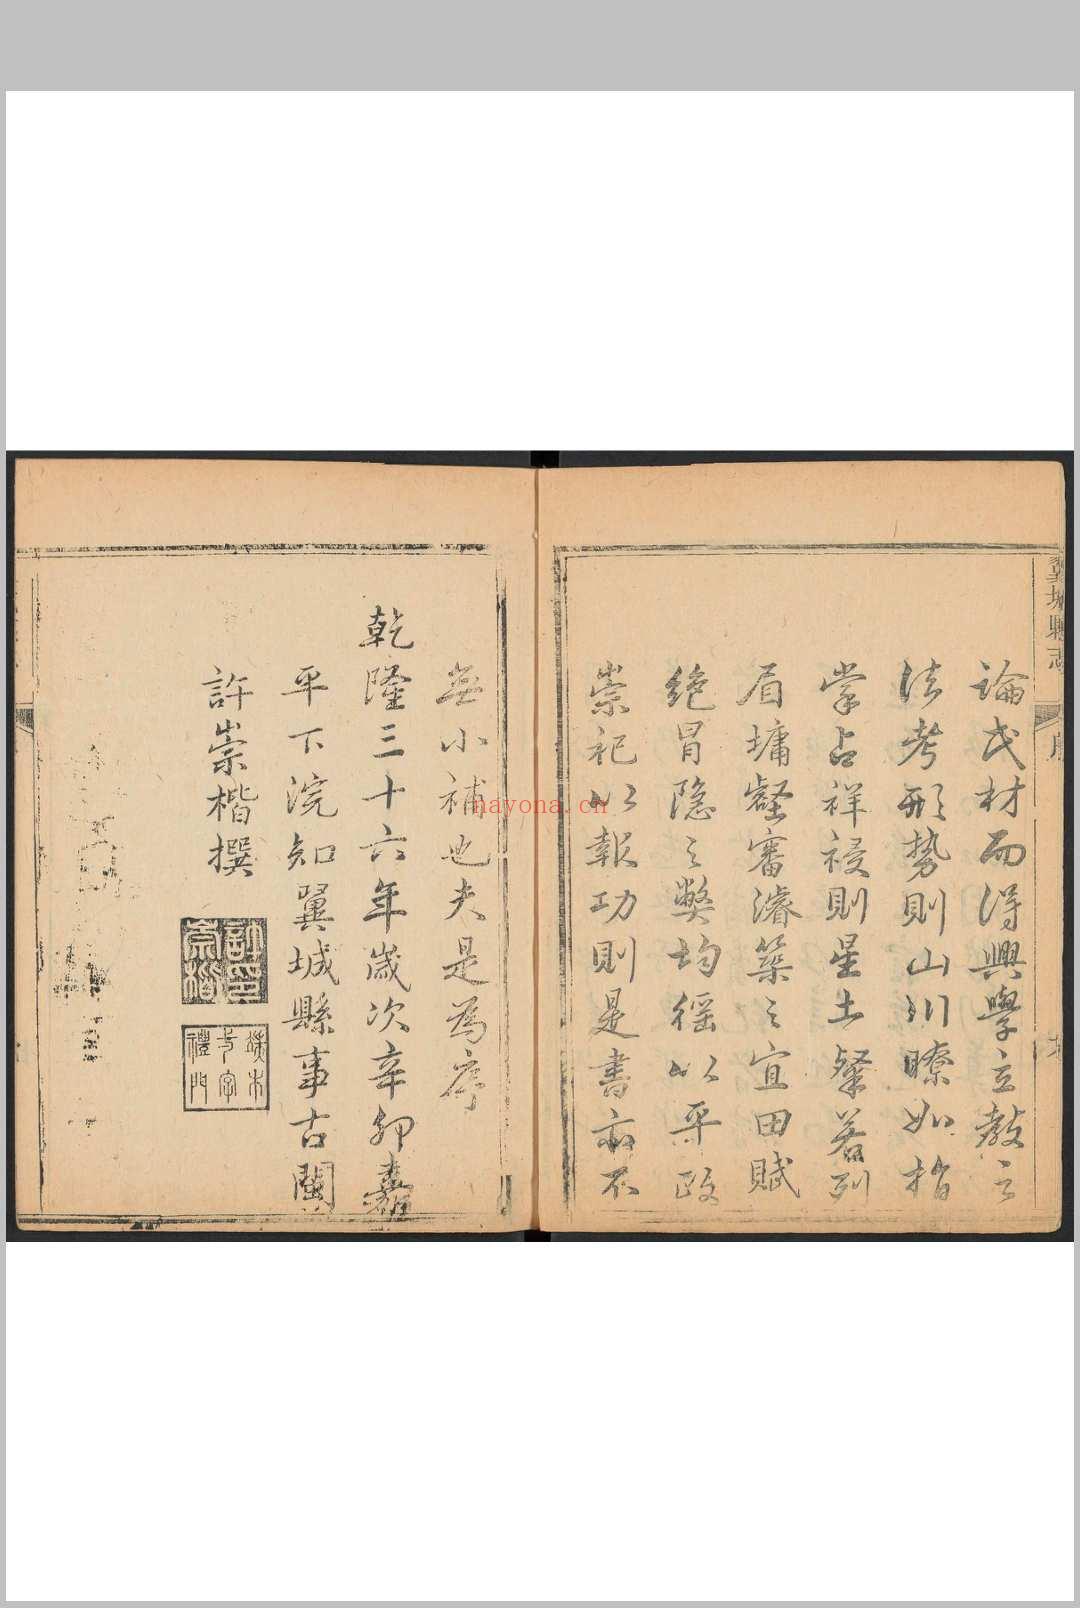 翼城縣志
序
論民材而得興學立教之
法考形勢則山川瞭如指
掌占祥祲則星土粲若列
眉墉壑審濬築之宜田賦
絶冒隐之弊均徭以平政
崇祀以報功則是書亦不
無小補也夫是為序
乾隆三十六年歲次辛卯嘉
平下浣知翼城縣事古閩
許崇楷撰
許崇楷印
禮門
nayona.cn